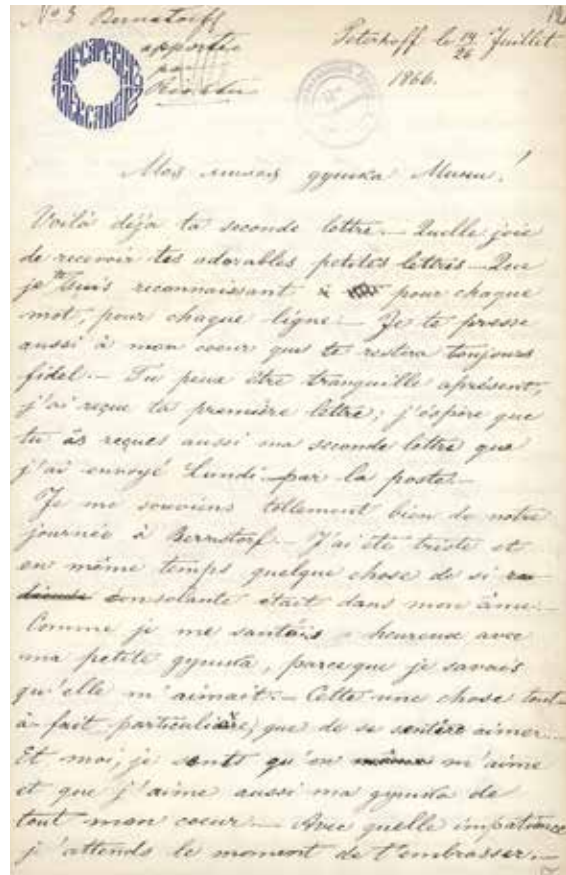 No 3 Bernstorff
apportée
par
Peterhoff le 14/26 Juillet
1866.
ЦЕСАРЕВИЧ АЛЕКСАНДР
Моя милая душка Минни!
Voilà déja ta seconde lettre.— Quelle joie
de recevoir tes adorables petites lettres.— Que
je te suis reconnaissant pour chaque
mot, pour chaque ligne.— Je te presse
aussi à mon coeur qui te restera toujours
fidel.— Tu peux être tranquille aprésent,
j'ai reçue ta première lettre; j'éspère que
tu as reçues aussi ma seconde lettre que
j'ai envoyé Lundi par la poste.—
Je me souviens tellement bien de notre
journée à Bernstorf.— J'ai été triste et
en même temps quelque chose de si
consolante était dans mon âme.—
Comme je me santais heureux avec
ma petite душка, parceque je savais
qu'elle m'aimait.— Cette une chose tout-
à-fait particulière, que de se sentire aimer.—
Et moi, je sents qu'on m'aime
et que j'aime aussi ma душка de
tout mon coeur.— Avec quelle impatience
j'attends le moment de t'embrasser.—